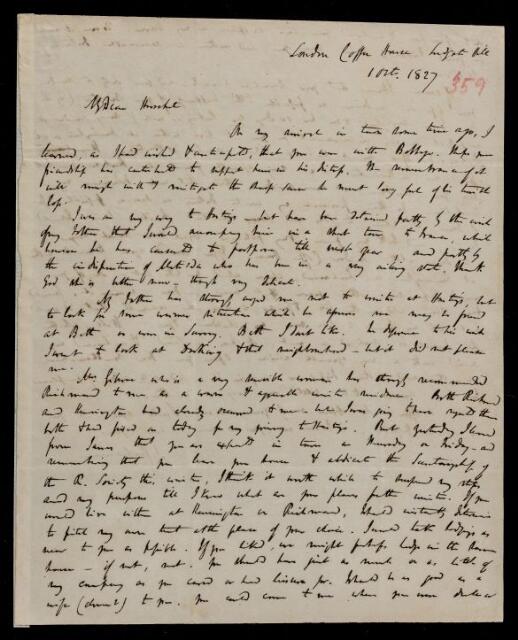 London Coffee House Ludgate Hill
1 Oct. 1827
359
My dear Herschel
On my arrival in town some time ago, I
learned, as I had wished & anticipated, that you were with Babbage. I hope your
friendship has contributed to support him in his distress. The remembrance of it
will mingle with & mitigate the sharp sense he must long feel of his terrible
loss.
I was on my way to Hastings — but have been detained partly by the wish
of my Father that I would accompany him in a short tour to France, which
however he has consented to postpone till next year, and partly by
the indisposition of Matilda who has been in a very ailing state. Thank
God she is better now — though very delicate.
My Father has strongly urged me not to winter at Hastings, but
to look for some warmer situation which he assures me may be found
at Bath or even in Surrey. Bath I don't like. In deference to his wish
I went to look at Dorking & that neighbourhood — but it did not please
me.
Mrs. Gibson who is a very sensible woman has strongly recommended
Richmond to me as a warm & agreeable winter residence. Both Richmond
and Kensington had already occurred to me — but I was going to have rejected them
both & had fixed on today for my journey to Hastings. But yesterday I learned
from James that you are expected in town on Thursday or Friday — and
remembering that you leave your house & abdicate the Secretaryship of
the R. Society this winter, I think it worth while to suspend my steps
and my purpose till I know what are your plans for the winter. If you
would live either at Kensington or Richmond, I should instantly determine
to pitch my own tent at the place of your choice. I would take lodgings as
near to you as possible. If you liked, we might perhaps lodge in the same
house — if not, not. You should have just as much or as little of
my company as you cared or had leisure for. I should be as good as a
wife to you. You could come to me when you were dull or